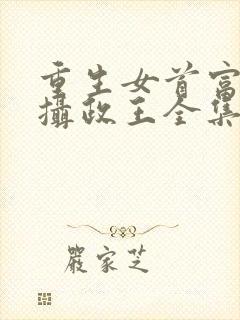 重生女首富
攝政王全集
嚴家芝